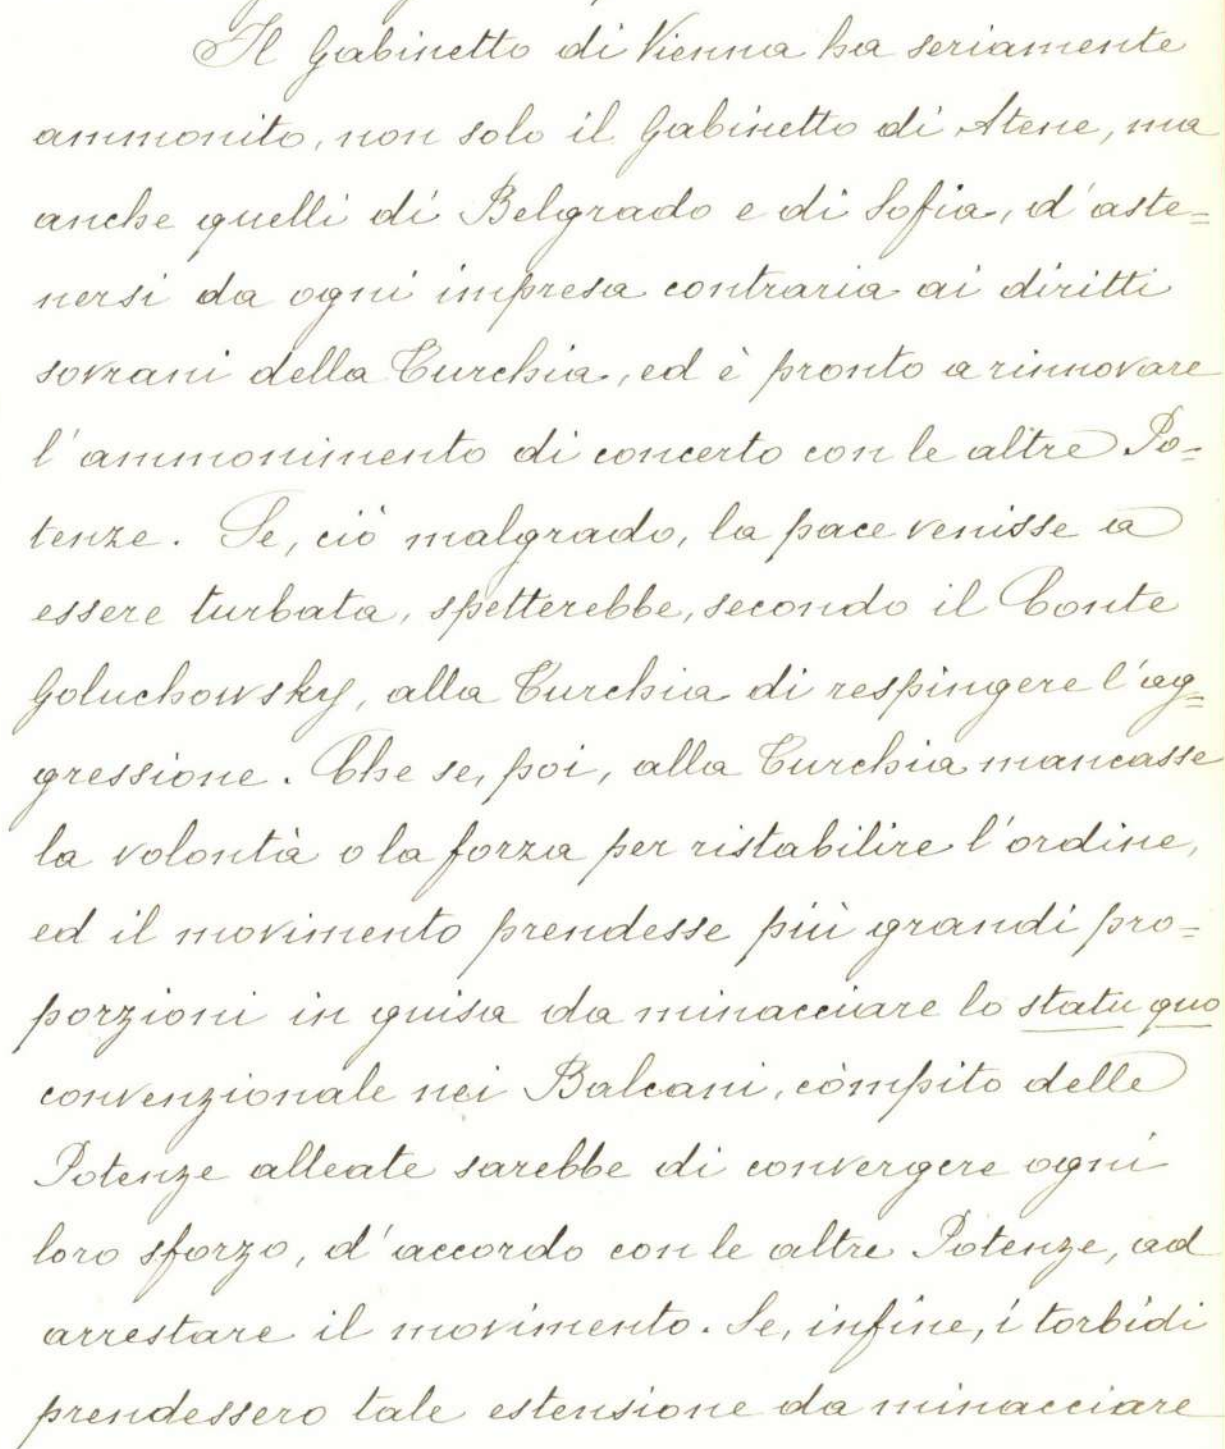 Il Gabinetto di Vienna ha seriamente
ammonito, non solo il Gabinetto di Atene, ma
anche quelli di Belgrado e di Sofia, d'aste=
nersi da ogni impresa contraria ai diritti
sovrani della Turchia, ed è pronto a rinnovare
l'ammonimento di concerto con le altre Po=
tenze. Se, ciò malgrado, la pace venisse a
essere turbata, spetterebbe, secondo il Conte
Goluchowsky, alla Turchia di respingere l'ag=
gressione. Che se, poi, alla Turchia mancasse
la volontà o la forza per ristabilire l'ordine,
ed il movimento prendesse più grandi pro=
porzioni in guisa da minacciare lo statu quo
convenzionale nei Balcani, còmpito delle
Potenze alleate sarebbe di convergere ogni
loro sforzo, d'accordo con le altre Potenze, ad
arrestare il movimento. Se, infine, i torbidi
prendessero tale estensione da minacciare